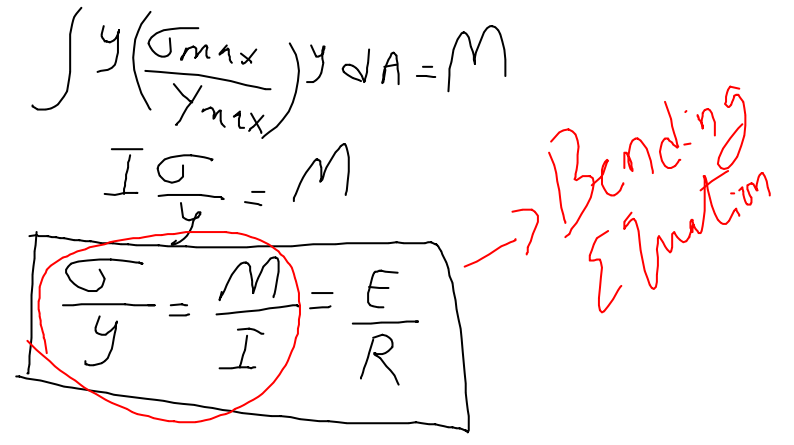 ∫ y (σmax / ymax) y dA = M
I σ/y = M
σ/y = M/I = E/R
→ Bending
Equation